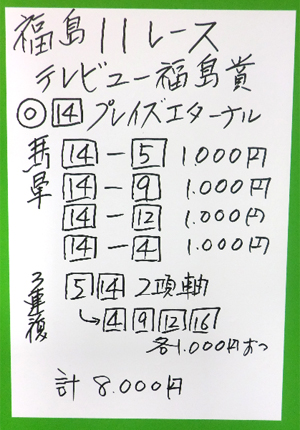 福島11レース
テレビュー福島賞
◎ 14 プレイズエターナル
馬単
14 － 5 1.000円
14 － 9 1.000円
14 － 12 1.000円
14 － 4 1.000円
3連複
5 14 2頭軸
→ 4 9 12 16
各1.000円ずつ
計 8.000円